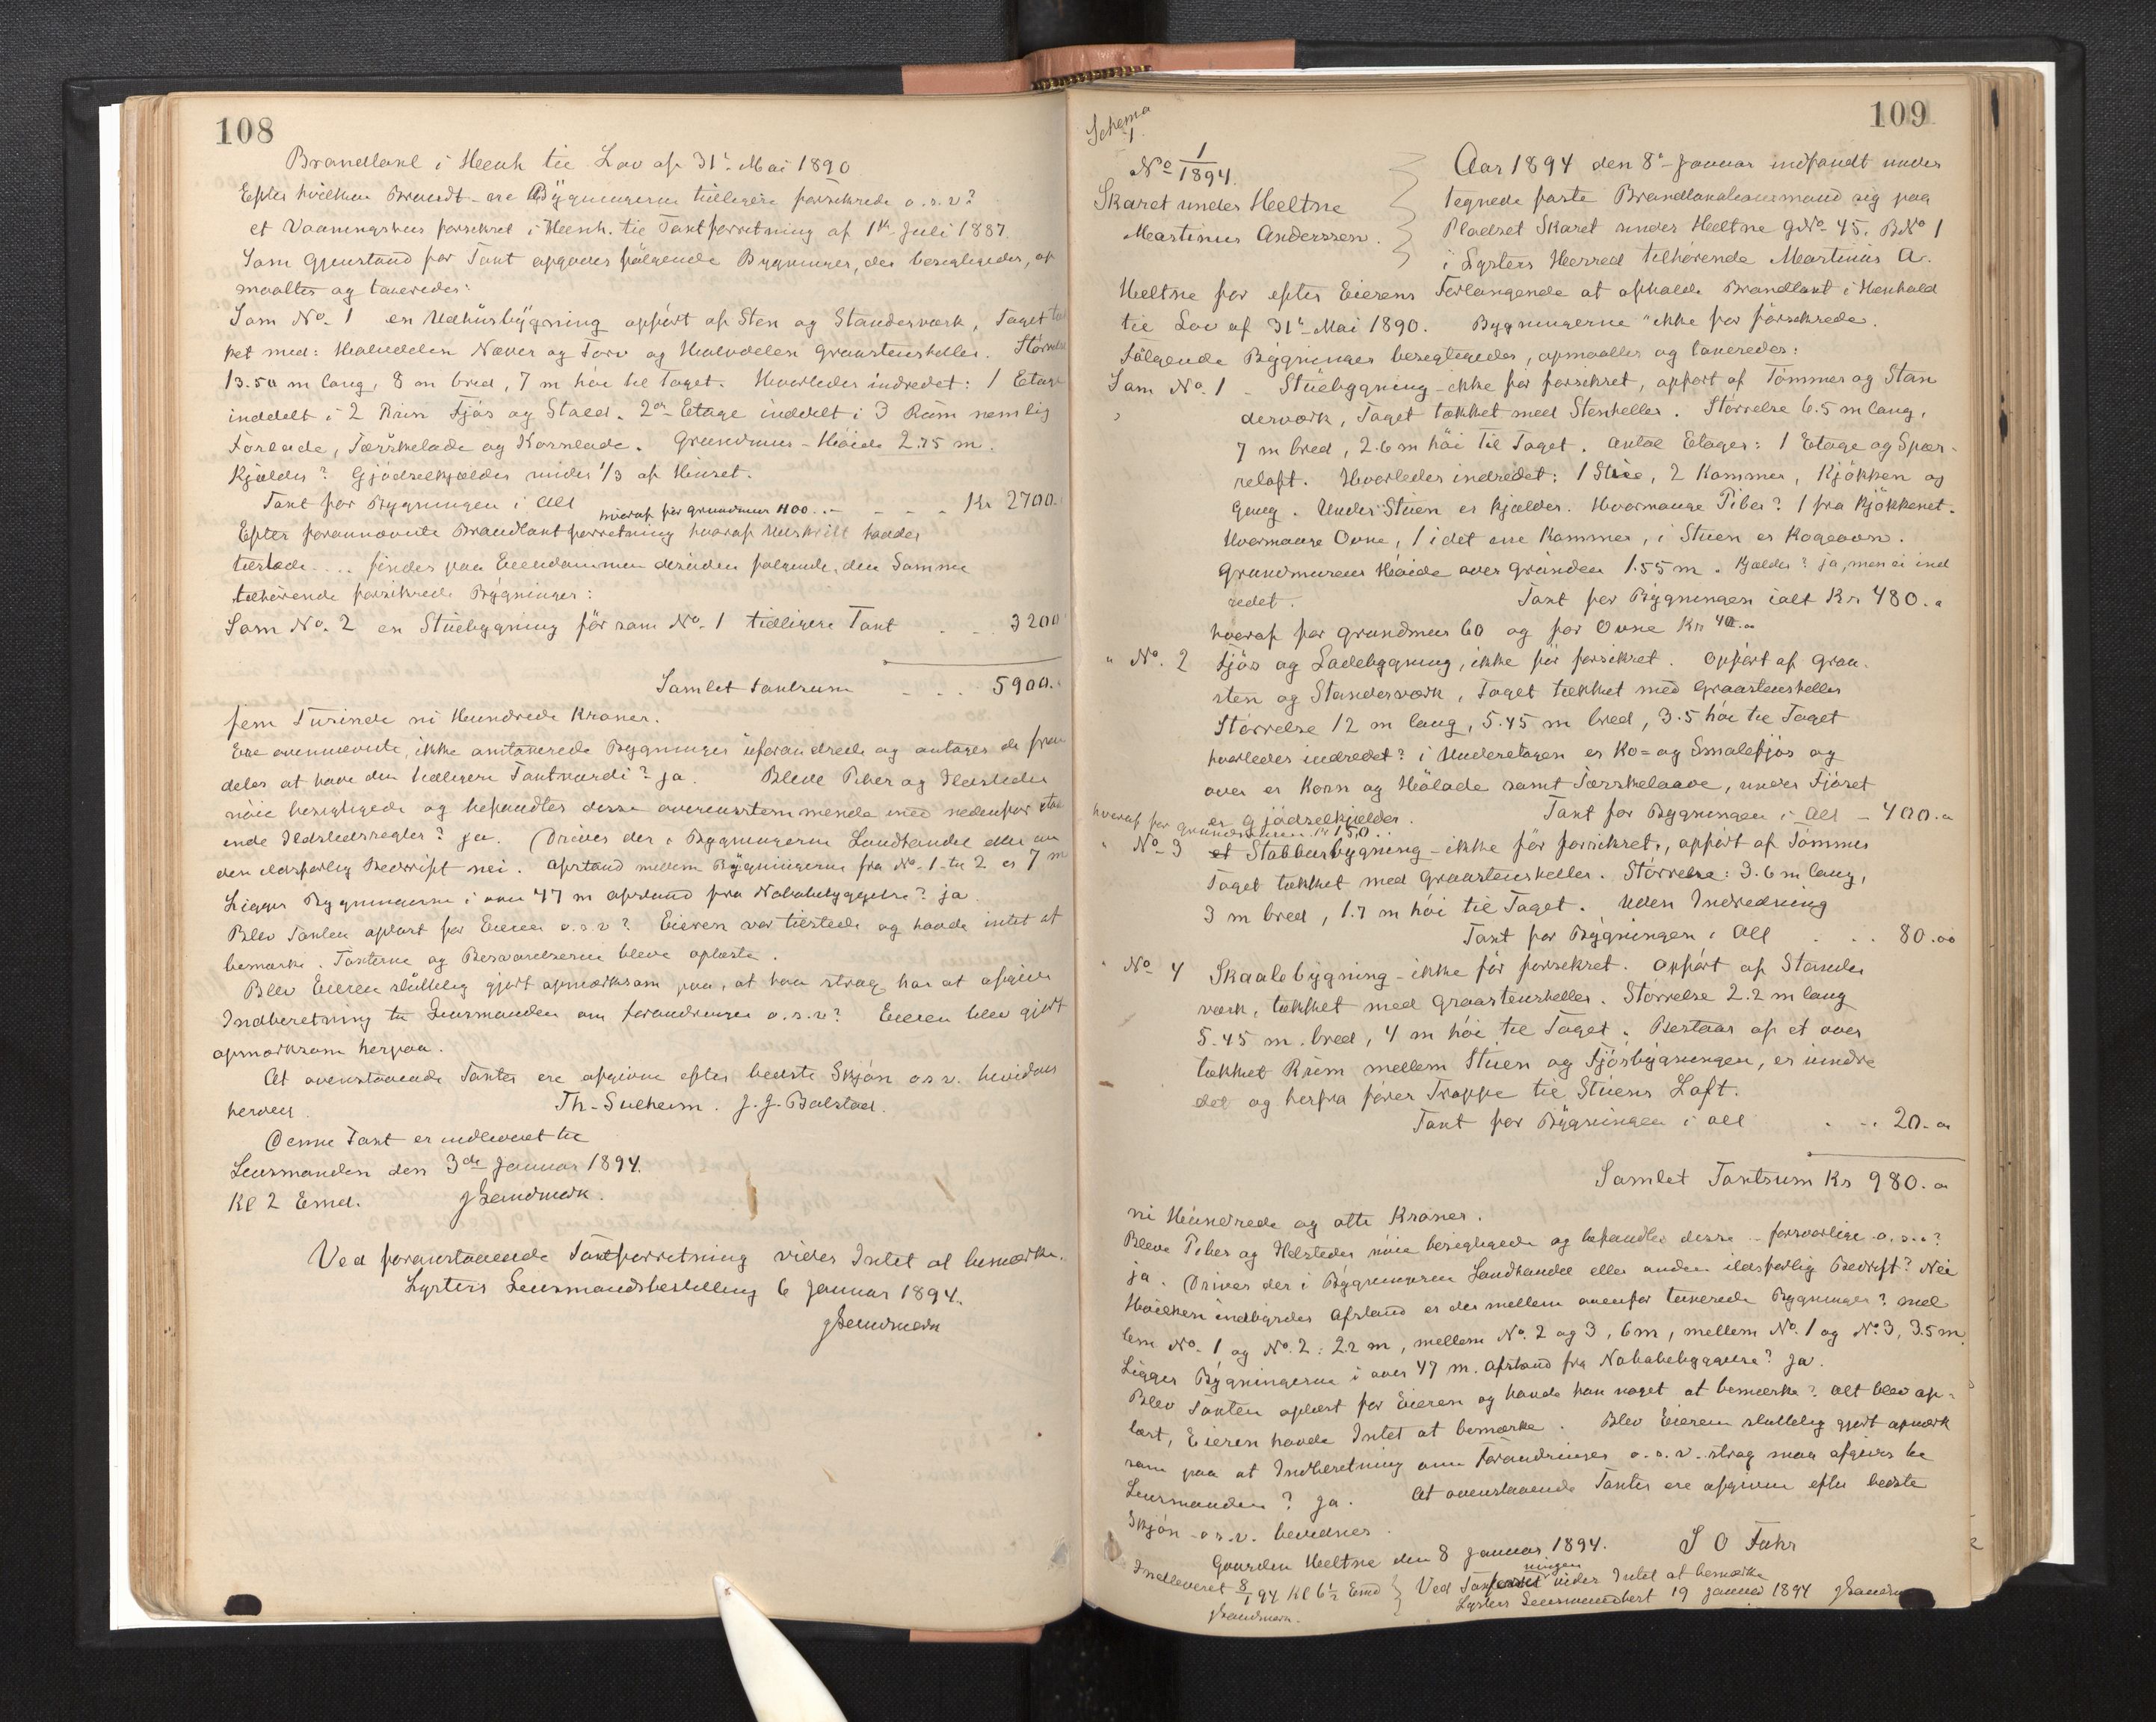 108
Brandtakt i Henh til Lov af 31te Mai 1890
Efter hvilken Brandt - ere Bÿgningerne tidligere forsikrede o.s.v?
et Vaaningshus forsikret i Henh. til Taxtforretning af 1ste Juli 1887.
Som Gjenstand for Taxt opgaves følgende Bygninger, der besigtigedes, op
maaltes og taxeredes:
Som No. 1 en Udhüsbÿgning opført af Sten og Standerværk, Taget tæk
ket med: Halvdelen Næver og Torv og Halvdelen Graastensheller. Størrelse
13.50 m lang, 8 m bred, 7 m høi til Taget. Hvorledes indredet: 1 Etage
inddelt i 2 Rüm Fjøs og Stald. 2den Etage inddelt i 3 Rüm nemlig
Forlade, Tærskelade og Kornlade. Grundmur-Høide 2.75 m.
Kjælder? Gjødselkjælder under 1/3 af Hüset.
Taxt for Bygningen i Alt hvoraf for Grundmur 400 . . - - - - Kr 2700.
Efter forannævnte Brandtaxtforretning hvoraf Udskrift havdes
tilstede .... findes paa Eiendommen desuden følgende, den Samme
tilhørende forsikrede Bÿgninger:
Som No. 2 en Stüebygning før som No. 1 tidligere Taxt . . - 3200
Samlet taxtsum - . . . 5900.
fem Tusinde ni Hundrede Kroner.
Ere ovennævnte, ikke omtaxerede Bygninger uforandrede og antages de frem
deles at have den tidligere Taxtværdi? ja. Bleve Piber og Ildsteder
nøie besigtigede og befandtes disse overensstemmende med nedenfor staa
ende Ildstedsregler? ja. Drives der i Bygningerne Landhandel eller an
den ildsfarlig Bedrift nei. Afstand mellem Bÿgningerne fra No. 1 til 2 er 7 m
Ligger Bygningerne i over 47 m afstand fra Nabobebyggelse? ja
Blev Taxten oplæst for Eieren o.s.v? Eieren var tilstede og havde intet at
bemærke. Taxterne og Besvarelserne bleve oplæste.
Blev Eieren slüttelig gjort opmærksom paa, at han strax har at afgive
Indberetning til Lensmanden om forandringer o.s.v? Eieren blev gjort
opmærksom herpaa.
At ovenstaaende Taxter ere afgivne efter bedste Skjøn o.s.v. bevidnes
herved. Th. Sulheim. J. J. Bolstad.
Denne Taxt er indleveret til
Lensmanden den 3de Januar 1894.
Kl 2 Emd. J Sandmark.
Ved foranstaaende Taxtforretning vides Intet at bemærke.
Lysters Lensmandsbestilling 6 Januar 1894.
J Sandmark
109
Schema
1.
No 1/1894.
Skaret under Heltne
Martinus Anderssen.
Aar 1894 den 8de Januar indfandt under
tegnede faste Brandtaxationsmand sig paa
Pladset Skaret under Heltne GNo. 45. BNo 1
i Lysters Herred tilhørende Martinus A.
Heltne for efter Eierens Forlangende at afholde Brandtaxt i Henhold
til Lov af 31te Mai 1890. Bygningerne ikke før forsikrede.
Følgende Bÿgninger besigtigedes, opmaaltes og taxeredes:
Som No. 1 - Stüebygning - ikke før forsikret, opført af Tømmer og Stan
derværk, Taget tækket med Stenheller. Størrelse 6.5 m lang,
7 m bred, 2.6 m høi til Taget. Antal Etager: 1 Etage og Spær-
reloft. Hvorledes indredet: 1 Stüe, 2 Kammer, Kjøkken og
Gang. Under Stüen er Kjælder. Hvormange Piber? 1 fra Kjøkkenet.
Hvormange Ovne, 1 i det ene Kammer, i Stüen er Kogeovn.
Grundmurens Høide over Gründen 1.55 m. Kjælder? ja, men ei ind
redet. Taxt for Bÿgningen ialt Kr 480.00
hvoraf for Grundmur 60 og for Ovne Kr 40.00
" No. 2 Fjøs og Ladebygning, ikke før forsikret. Opført af Graa-
sten og Standerværk, Taget tækket med Graastensheller
Størrelse 12 m lang, 5.45 m bred, 3.5 høi til Taget
hvorledes indredet? i Underetagen er Ko- og Smalefjøs og
over er Korn og Hølade samt Tærskelaave, under Fjøset
er Gjødselkjælder. Taxt for Bygningen i Alt - 400.00
hvoraf for grundmuren Kr 150..
" No. 3 et Stabbursbygning - ikke før forsikret, opført af Tømmer
Taget tækket med Graastensheller. Størrelse: 3.6 m lang,
3 m bred, 1.7 m høi til Taget. Uden Indredning
Taxt for Bÿgningen i Alt . . . 80.00
" No. 4 Skaalebÿgning - ikke før forsikret. Opført af Stander
værk, tækket med Graastensheller. Størrelse 2.2 m lang
5.45 m. bred, 4 m høi til Taget. Bestaar af et over
tækket Rüm mellem Stüen og Fjøsbÿgningen, er üindre
det og herfra fører Trappe til Stüens Loft.
Taxt for Bÿgningen i alt . - . 20.00
Samlet Taxtsum Kr 980.00
ni Hündrede og otti Kroner.
Bleve Piber og Ildsteder nøie besigtigede og befandtes disse - forsvarlige o.s.v.?
ja. Drives der i Bÿgningerne Landhandel eller anden ildsfarlig Bedrift? Nei
Hvilken indbyrdes Afstand er der mellem ovenfor taxerede Bygninger? mel
lem No. 1 og No. 2: 2.2 m, mellem No. 2 og 3, 6 m, mellem No. 1 og No. 3, 3.5 m.
Ligger Bÿgningerne i over 47 m. Afstand fra Nabobebyggelse? ja.
Blev Taxten oplæst for Eieren og havde han noget at bemærke? Alt blev op-
læst, Eieren havde Intet at bemærke. Blev Eieren slüttelig gjort opmærk
som paa at Indberetning om Forandringer o.s.v. strax maa afgives til
Lensmanden? ja. At ovenstaaende Taxter ere afgivne efter bedste
Skjøn o.s.v. bevidnes.
Gaarden Heltne den 8 Januar 1894. S O Fuhr
Indleveret 8/1 94 Kl 6 1/2 Emd
J Sandmark.
Ved Taxtforretningen vides Intet at bemærke
Lysters Lensmandbest 19 Januar 1894